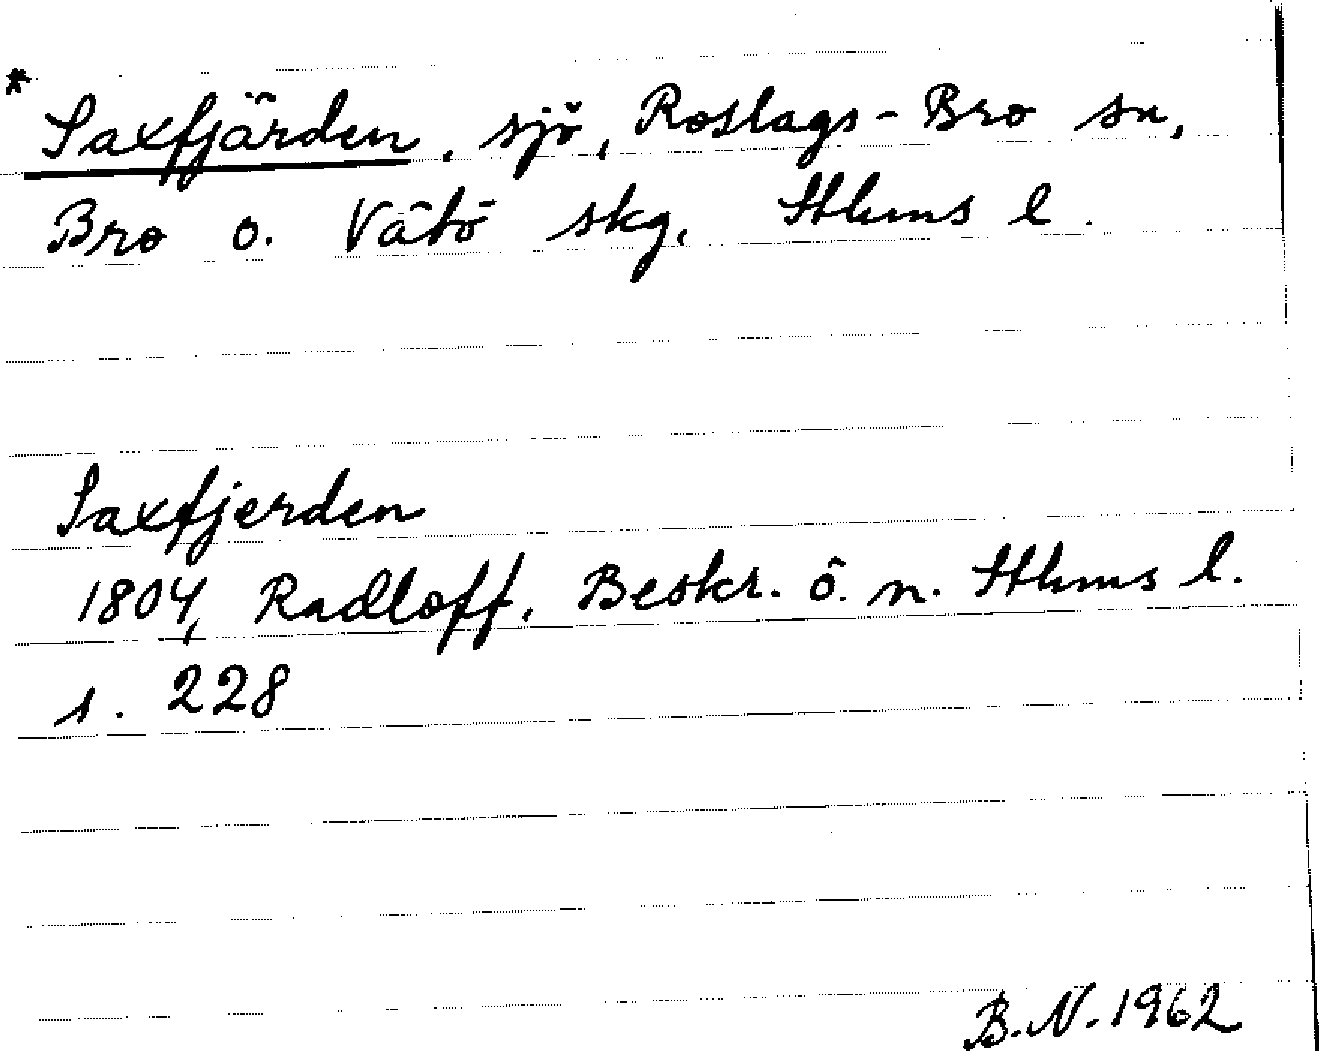 * Saxfjärden, sjö, Roslags-Bro sn,
Bro o. Vätö skg, Sthms l.
Saxfjerden
1804, Radloff, Beskr. ö. n. Sthms l.
s. 228
B.N. 1962